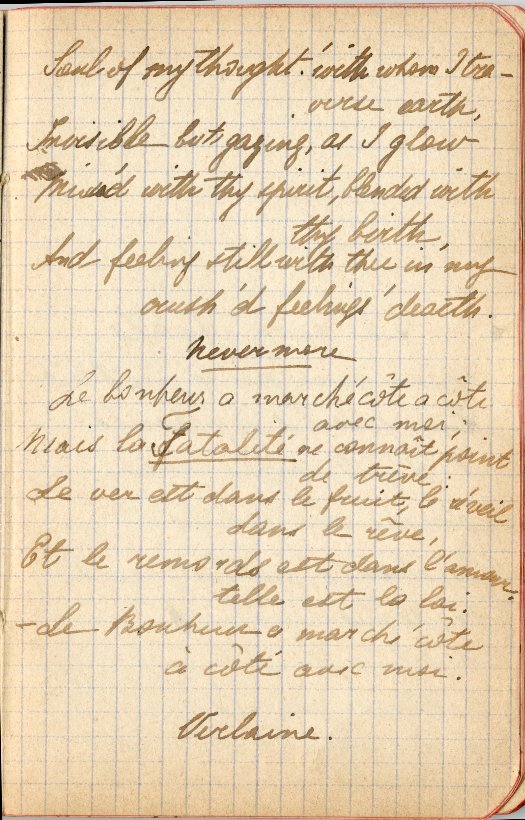 Soul of my thought! with whom I tra-
verse earth,
Invisible but gazing, as I glow
Mix'd with thy spirit, blended with
thy birth,
And feeling still with thee in my
crush'd feelings' dearth.
Nevermore
Le bonheur a marché côte a côte
avec moi;
Mais la Fatalité ne connaît point
de trêve:
Le ver est dans le fruit, le réveil
dans le rêve,
Et le remords est dans l'amour:
telle est la loi.
- Le Bonheur a marché côte
à côté avec moi.
Verlaine.